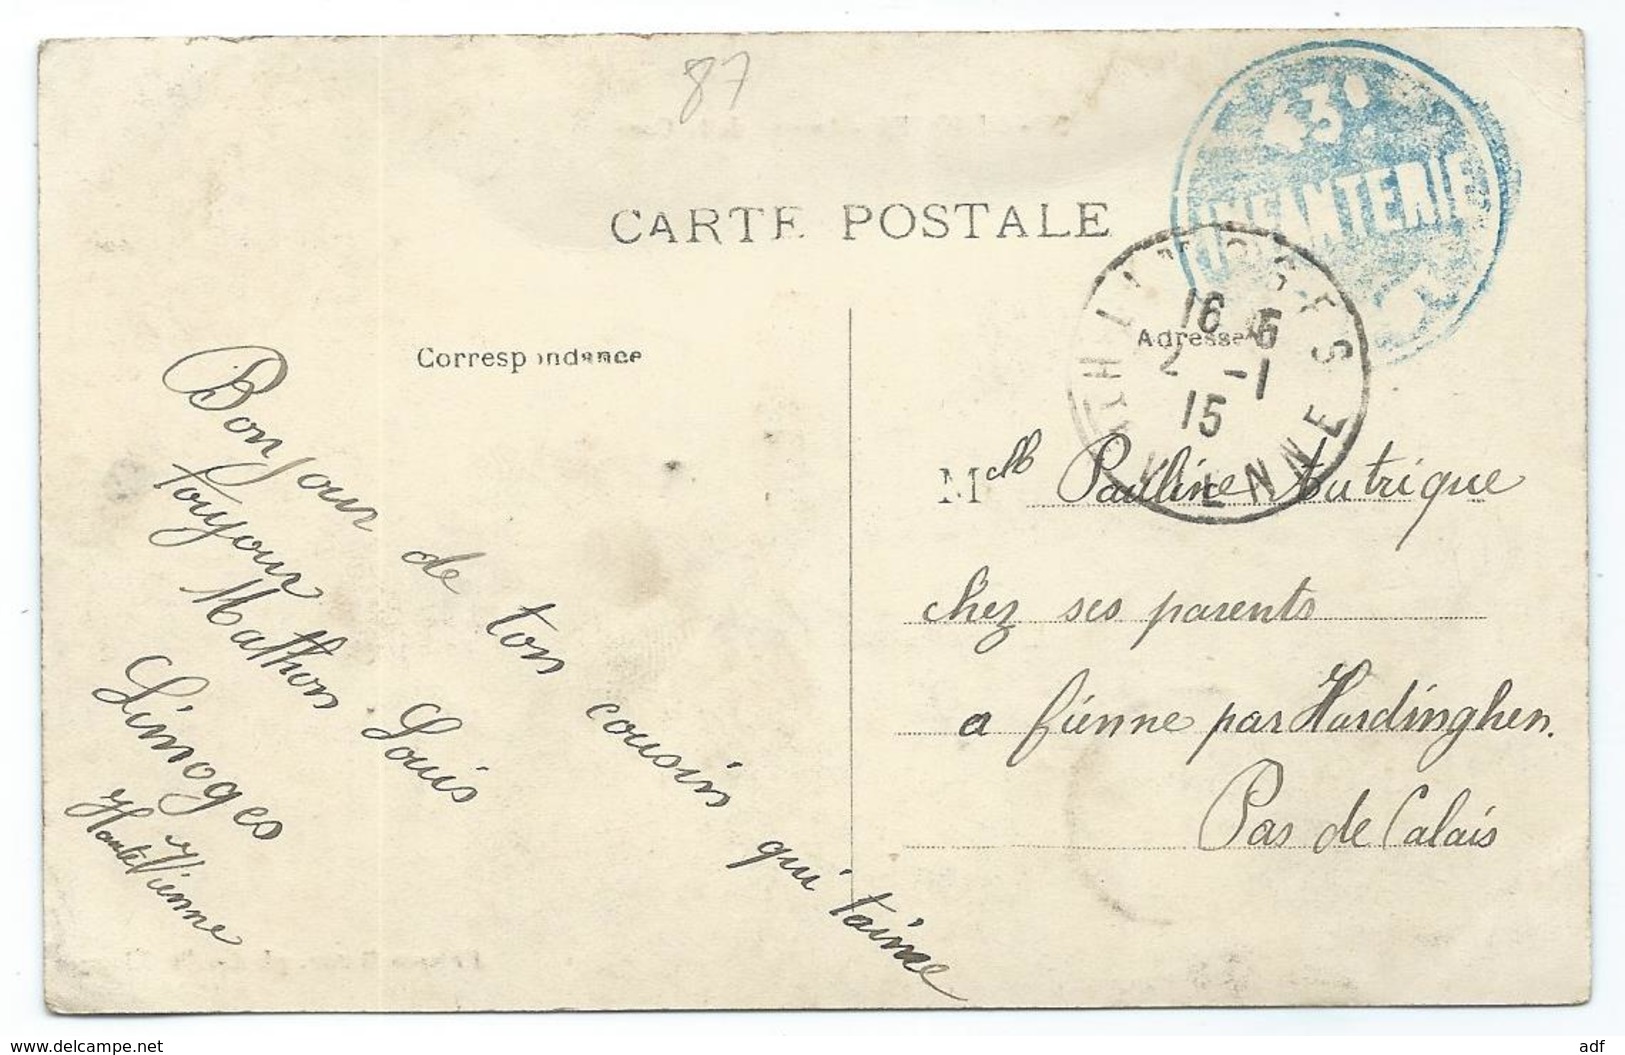 87
43e
INFANTERIE
CARTE POSTALE
LIMOGES
16 45
2 -1
15
Hte VIENNE
Correspondance
Adresse
Bonjour de ton cousin qui t'aime
toujour
Mathon Louis
Limoges
Haute Vienne
Melle Pauline Autrique
chez ses parents
a fienne par Hardinghen.
Pas de Calais
www.delcampe.net
adf